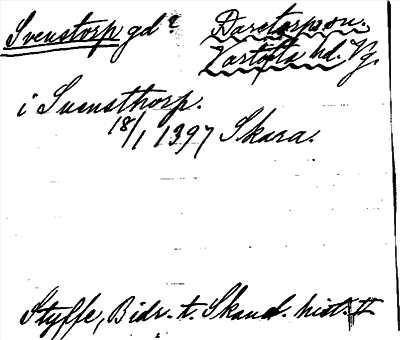 Svenstorp gd Daretorps sn.
Vartofta hd. Vg.
i Suensthorp.
18/1 1397 Skara.
Styffe, Bidr. t. Skand. hist. II